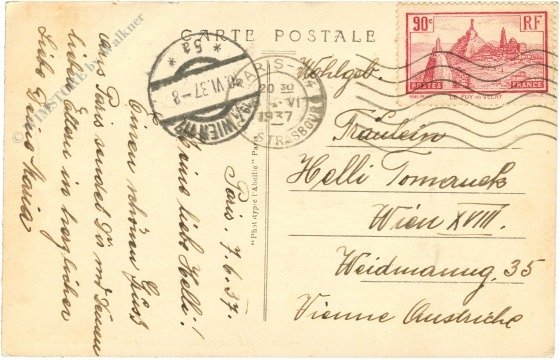 CARTE POSTALE
Paris. 7.6.37.
Meine liebe Helli!
Einen schönen Gruß
aus Paris sendet Dir und Deinen
lieben Eltern in herzlicher
Liebe Deine Maria
"Phototypie l'Abeille" Paris
* 5a *
WIEN 117
PARIS
20 30
VI
1937
STRASBOURG
90c
RF
POSTES
LE PUY EN VELAY
FRANCE
Wohlgeb.
Fräulein
Helli Tomaneck
Wien XVIII.
Weidmanng. 35
Vienne Autriche
© VIMSTORE by Falkner